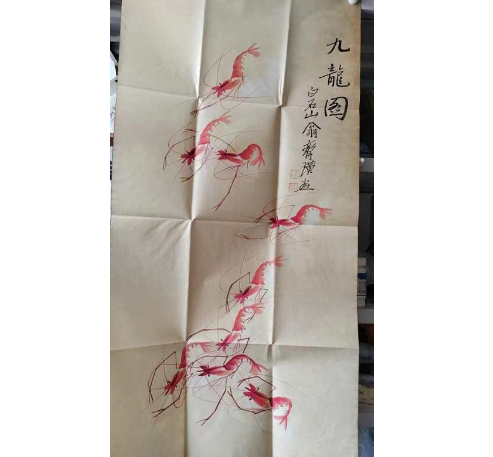 九龍圖
白石山翁齊璜画